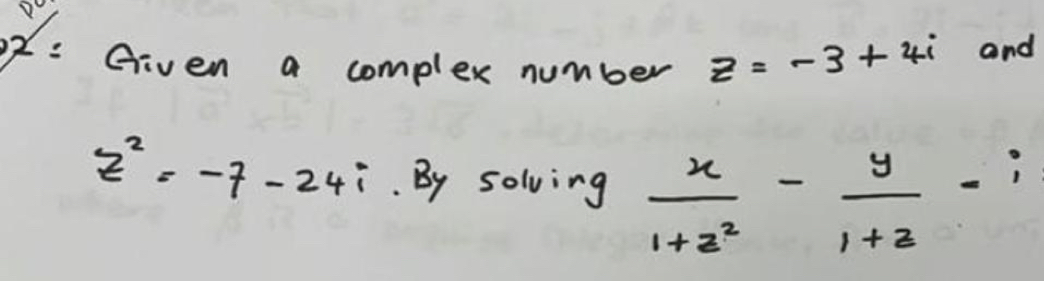 2: Given a complex number z = -3 + 4i and
z² = -7 - 24i. By solving x/(1+z²) - y/(1+z) = i